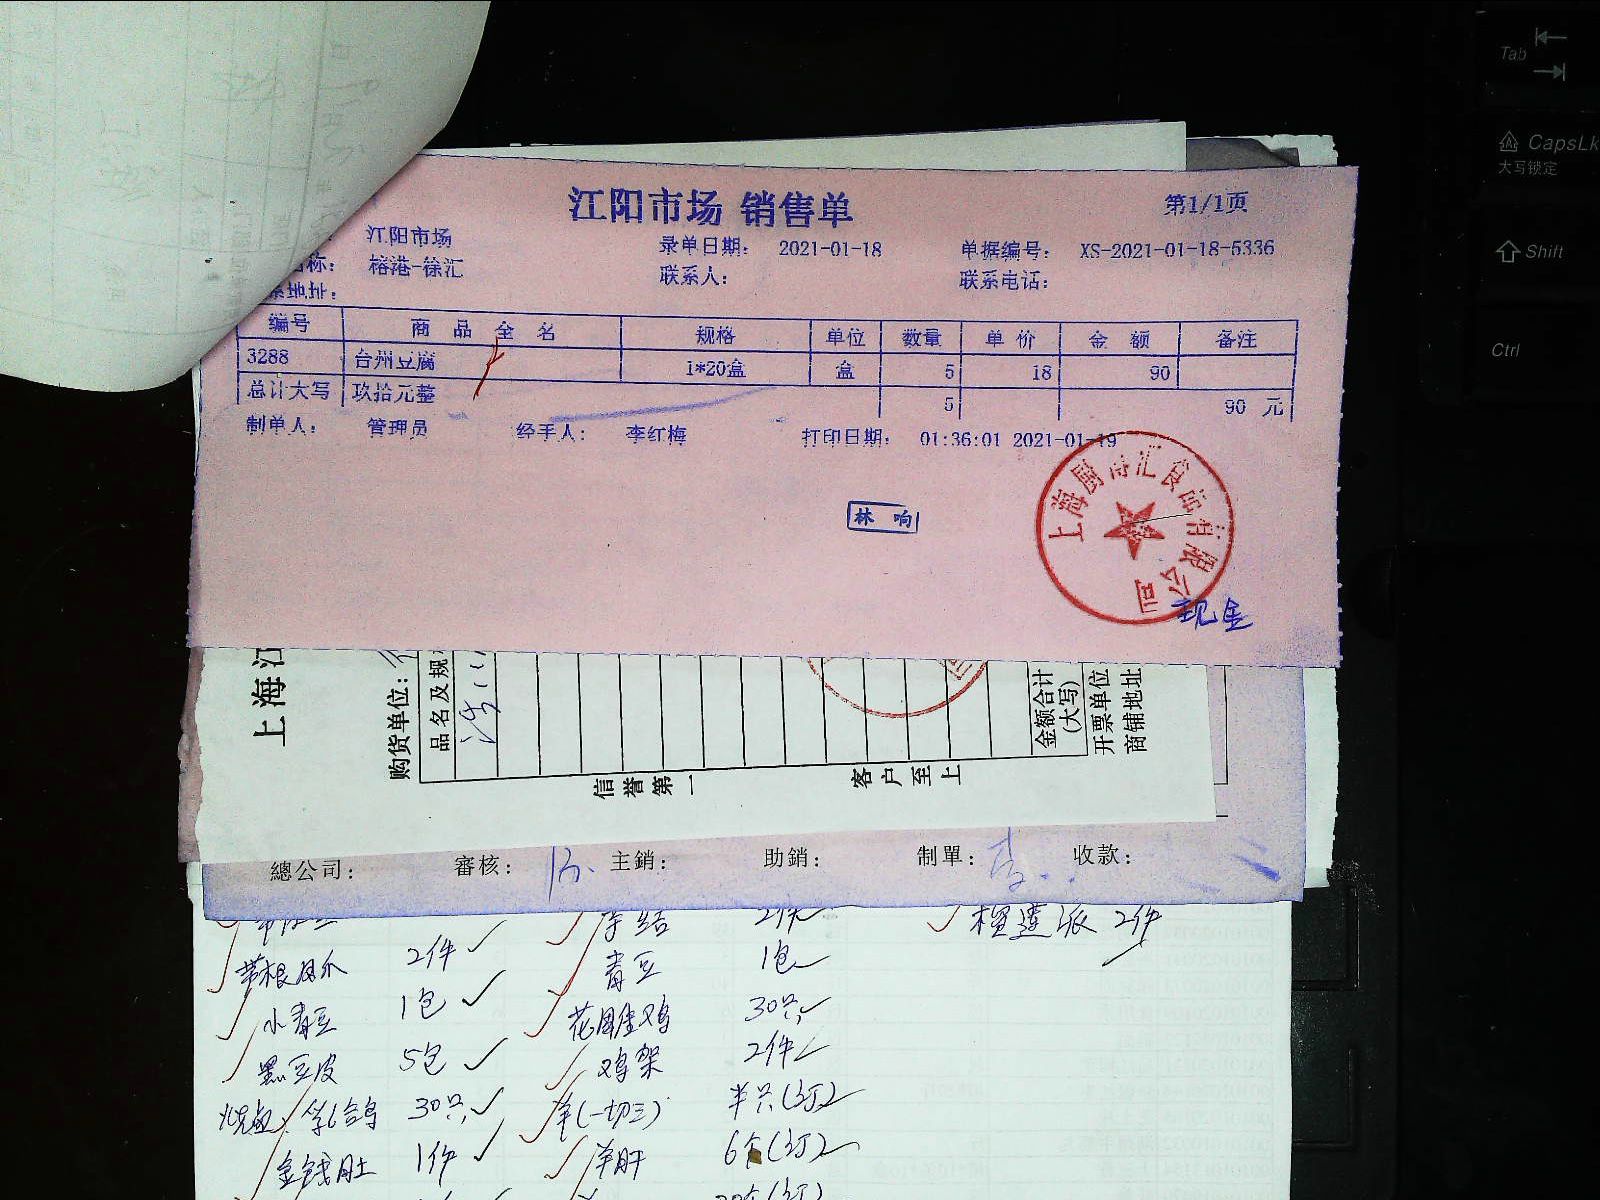 江阳市场 销售单
第1/1页
江阳市场 录单日期： 2021-01-18 单据编号： XS-2021-01-18-5336
称： 榕港-徐汇 联系人： 联系电话：
地址：
编号 商品全名 规格 单位 数量 单价 金额 备注
3288 台州豆腐 1*20盒 盒 5 18 90
总计大写 玖拾元整 5 90 元
制单人： 管理员 经手人： 李红梅 打印日期： 01:36:01 2021-01-19
林响
上海厨海汇食品有限公司
现金
上海江
购货单位：
品名及规
金额合计
(大写)
开票单位
商铺地址
信誉第一 客户至上
總公司： 審核： 主銷： 助銷： 制單： 收款：
2件
带根凤爪 2件 青豆 1包
小青豆 1包 花雕鸡 30只
黑豆皮 5包 鸡架 2件
乳鸽 30只 羊(一切三) 半只(订)
金钱肚 1件 羊肝 6个(订)
榴莲派 2件
Tab
CapsLk
大写锁定
Shift
Ctrl